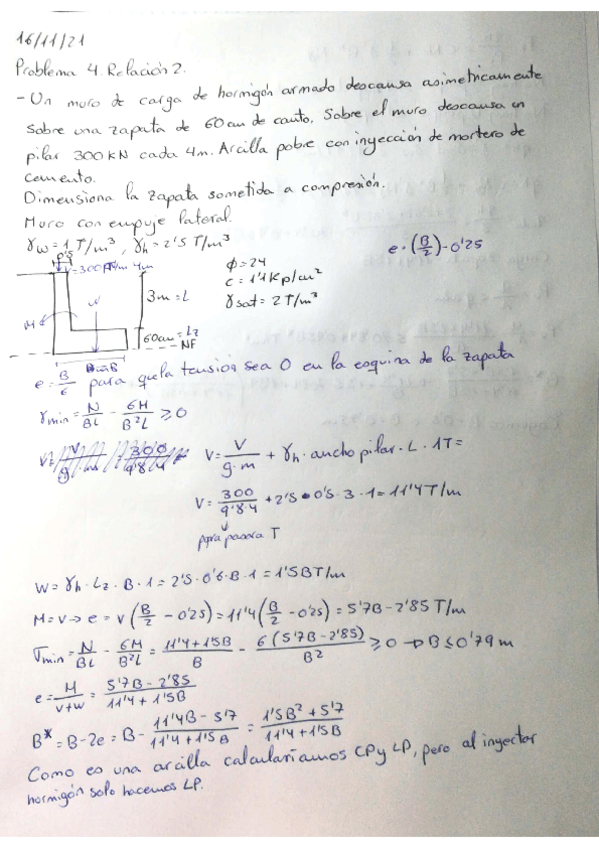 16/11/21
Problema 4. Relación 2.
- Un muro de carga de hormigón armado descansa asimetricamente
sobre una zapata de 60 cm de canto. Sobre el muro descansa un
pilar 300 KN cada 4m. Arcilla pobre con inyección de mortero de
cemento.
Dimensiona la zapata sometida a compresión.
Muro con empuje lateral.
γw = 1 T/m³, γh = 2'5 T/m³
e = (B/2) - 0'25
0'5
V=300 4m
φ = 24
c = 1'1 Kp/cm²
γsat = 2 T/m³
3m = L
M
N
60cm = L2
NF
B
e = B/6 para que la tension sea 0 en la esquina de la zapata
σmin = N/BL - 6M/B²L ≥ 0
V = V/g·m + γh · ancho pilar · L · 1T =
V = 300/9'8·4 + 2'5 · 0'5 · 3 · 1 = 11'4 T/m
para pasar a T
W = γh · L2 · B · 1 = 2'5 · 0'6 · B · 1 = 1'5B T/m
M = V → e = V (B/2 - 0'25) = 11'4 (B/2 - 0'25) = 5'7B - 2'85 T/m
σmin = N/BL - 6M/B²L = 11'4 + 1'5B/B - 6(5'7B - 2'85)/B² ≥ 0 → B ≤ 0'79 m
e = M/V+W = 5'7B - 2'85/11'4 + 1'5B
B* = B - 2e = B - 11'4B - 5'7/11'4 + 1'5B = 1'5B² + 5'7/11'4 + 1'5B
Como es una arcilla calcularíamos CP y LP, pero al inyectar
hormigón solo hacemos LP.